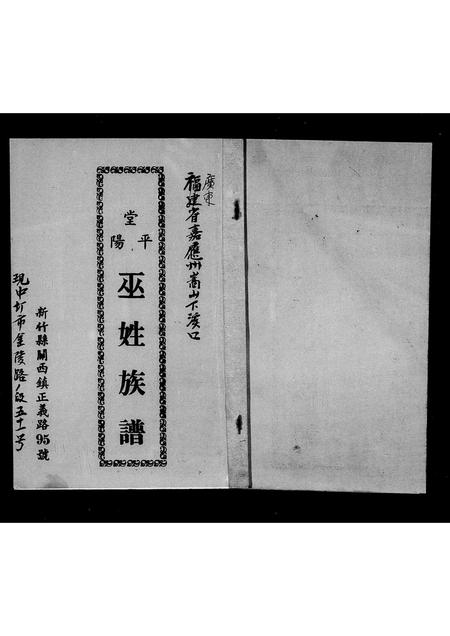 廣東
福建省嘉應州嵩山下渡口
平陽堂
巫姓族譜
新竹縣關西鎮正義路95號
現中圻市金陵路/段五十一号